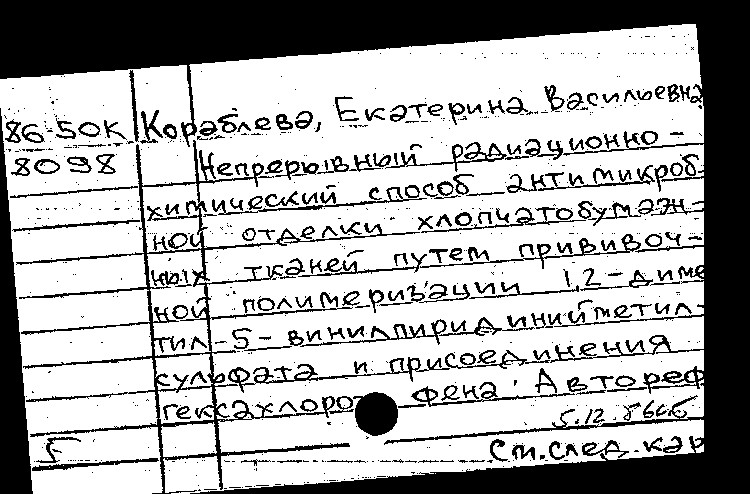 86-50К Кораблева, Екатерина Васильевна
8098 Непрерывный радиационно-
химический способ антимикроб
ной отделки хлопчатобумаж-
ных тканей путем прививоч-
ной полимеризации 1,2-диме
тил-5-винилпиридинийметил-
сульфата и присоединения
гексахлоро фена. Автореф
5.12.86
F См. след. кар